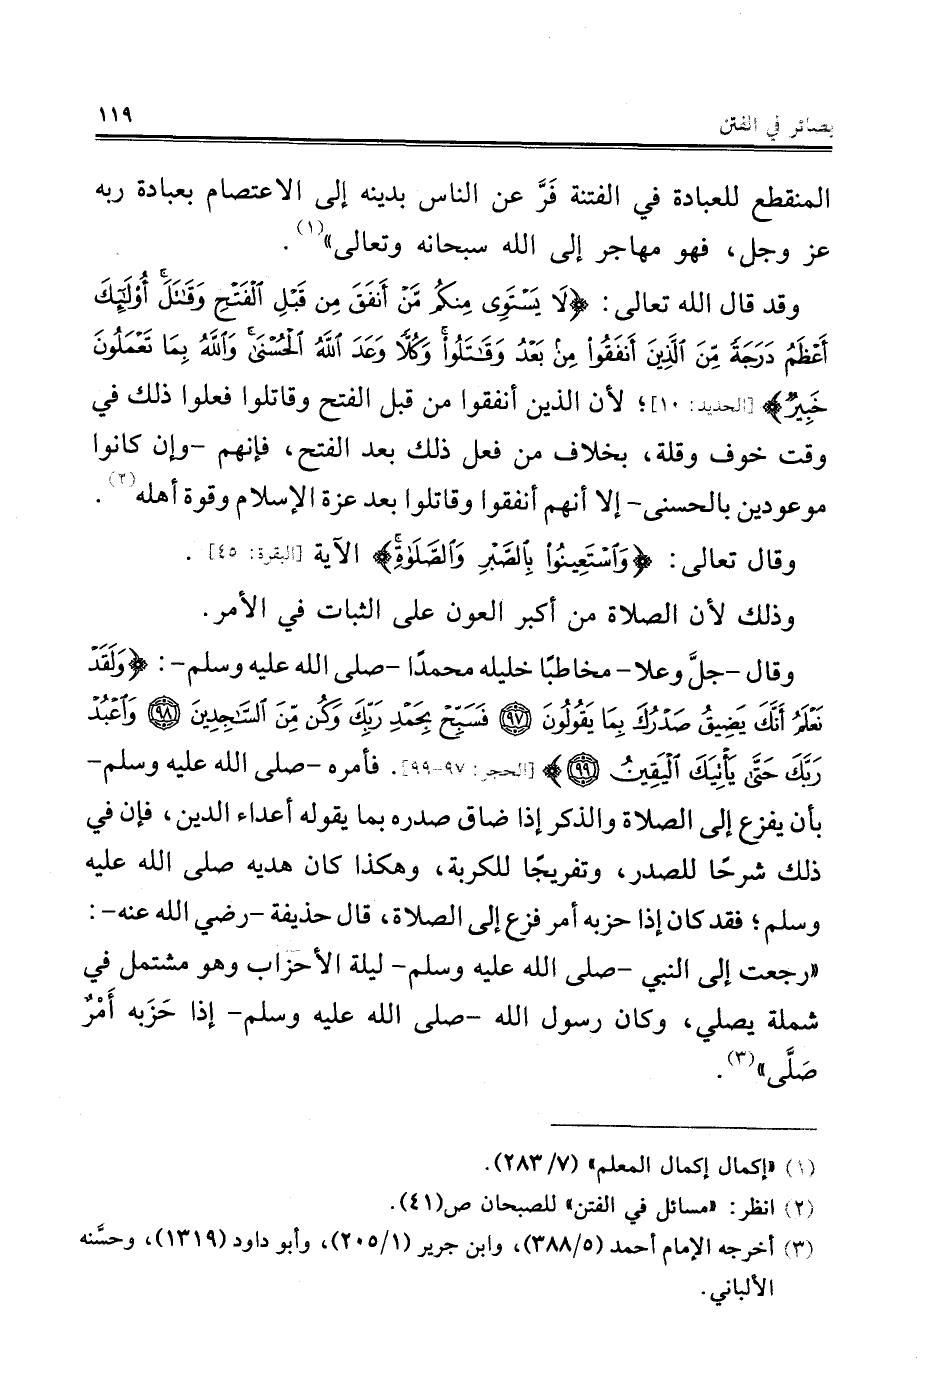 بصائر في الفتن
١١٩
المنقطع للعبادة في الفتنة فَرَّ عن الناس بدينه إلى الاعتصام بعبادة ربه
عز وجل، فهو مهاجر إلى الله سبحانه وتعالى»(١).
وقد قال الله تعالى: ﴿لَا يَسْتَوِى مِنكُم مَّنْ أَنفَقَ مِن قَبْلِ ٱلْفَتْحِ وَقَٰتَلَ ۚ أُو۟لَٰٓئِكَ
أَعْظَمُ دَرَجَةً مِّنَ ٱلَّذِينَ أَنفَقُوا۟ مِنۢ بَعْدُ وَقَٰتَلُوا۟ ۚ وَكُلًّا وَعَدَ ٱللَّهُ ٱلْحُسْنَىٰ ۚ وَٱللَّهُ بِمَا تَعْمَلُونَ
خَبِيرٌ﴾ [الحديد: ١٠]؛ لأن الذين أنفقوا من قبل الفتح وقاتلوا فعلوا ذلك في
وقت خوف وقلة، بخلاف من فعل ذلك بعد الفتح، فإنهم -وإن كانوا
موعودين بالحسنى- إلا أنهم أنفقوا وقاتلوا بعد عزة الإسلام وقوة أهله(٢).
وقال تعالى: ﴿وَٱسْتَعِينُوا۟ بِٱلصَّبْرِ وَٱلصَّلَوٰةِ ۚ﴾ الآية [البقرة: ٤٥].
وذلك لأن الصلاة من أكبر العون على الثبات في الأمر.
وقال -جلَّ وعلا- مخاطبًا خليله محمدًا -صلى الله عليه وسلم-: ﴿وَلَقَدْ
نَعْلَمُ أَنَّكَ يَضِيقُ صَدْرُكَ بِمَا يَقُولُونَ ﴿٩٧﴾ فَسَبِّحْ بِحَمْدِ رَبِّكَ وَكُن مِّنَ ٱلسَّٰجِدِينَ ﴿٩٨﴾ وَٱعْبُدْ
رَبَّكَ حَتَّىٰ يَأْتِيَكَ ٱلْيَقِينُ ﴿٩٩﴾﴾ [الحجر: ٩٧-٩٩]. فأمره -صلى الله عليه وسلم-
بأن يفزع إلى الصلاة والذكر إذا ضاق صدره بما يقوله أعداء الدين، فإن في
ذلك شرحًا للصدر، وتفريجًا للكربة، وهكذا كان هديه صلى الله عليه
وسلم؛ فقد كان إذا حزبه أمر فزع إلى الصلاة، قال حذيفة -رضي الله عنه-:
«رجعت إلى النبي -صلى الله عليه وسلم- ليلة الأحزاب وهو مشتمل في
شملة يصلي، وكان رسول الله -صلى الله عليه وسلم- إذا حَزَبه أَمْرٌ
صَلَّى»(٣).
(١) «إكمال إكمال المعلم» (٢٨٣/٧).
(٢) انظر: «مسائل في الفتن» للصبحان ص(٤١).
(٣) أخرجه الإمام أحمد (٣٨٨/٥)، وابن جرير (٢٠٥/١)، وأبو داود (١٣١٩)، وحسَّنه
الألباني.